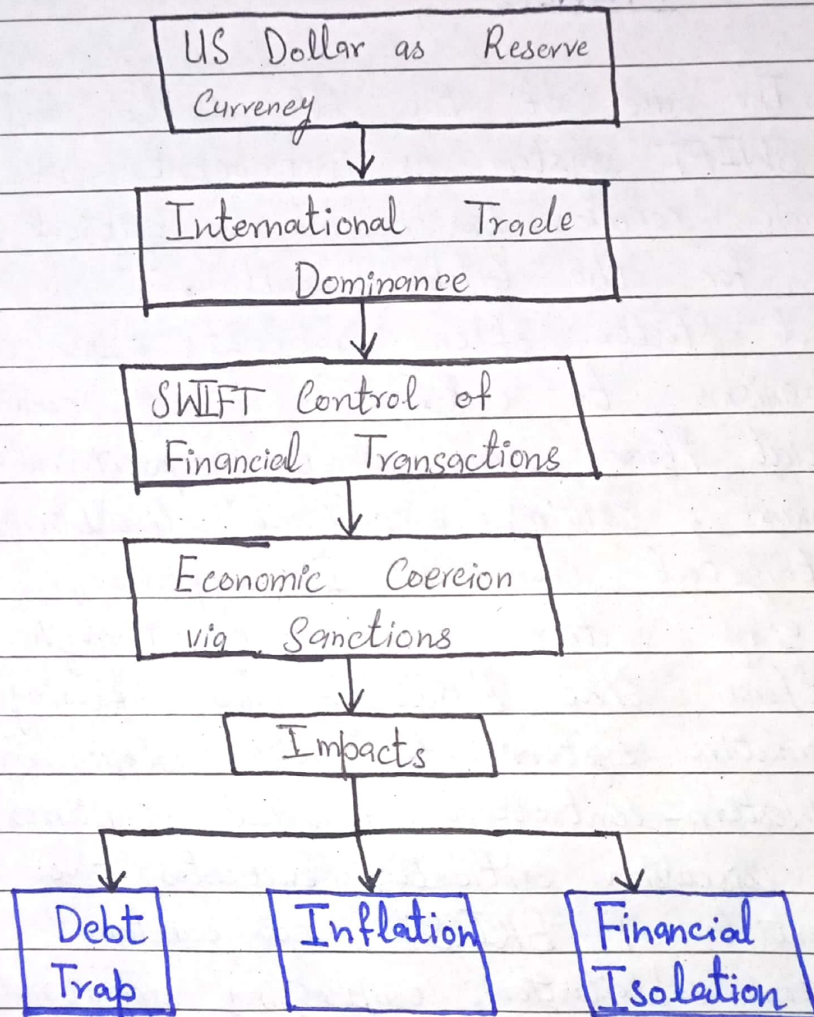 US Dollar as Reserve
Currency
International Trade
Dominance
SWIFT Control of
Financial Transactions
Economic Coercion
via Sanctions
Impacts
Debt
Trap
Inflation
Financial
Isolation